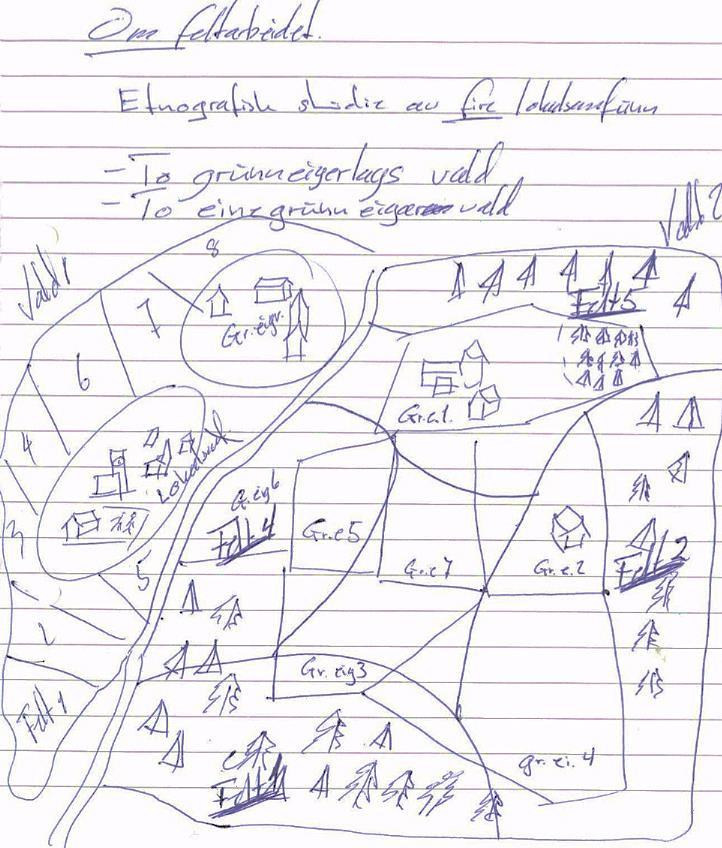 Om feltarbeidet.
Etnografisk studie av fire lokalsamfunn
- To grunneigerlags vald
- To eine grunn eigar vald
Vald 1
8
Vald 2
7
Gr. eigr.
Felt 5
6
Gr.e1.
4
Lokalsamf
G.eig6
Felt 4
Gr.e5
3
5
Gr.e7
Gr.e.2
Felt 2
1
2
Gr. eig3
Felt 1
gr.ei.4
Felt 1